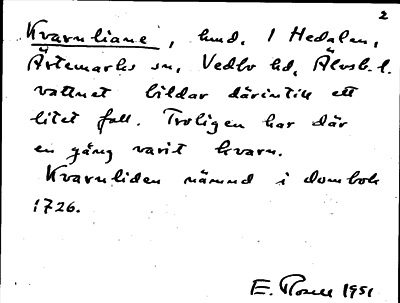 2
Kvarnliane, hmd. I Hedalen,
Ärtemarks sn, Vedbo hd, Älvsb. l.
vattnet bildar därintill ett
litet fall. Troligen har där
en gång varit kvarn.
Kvarnliden nämnd i dombok
1726.
E. Rosell 1951